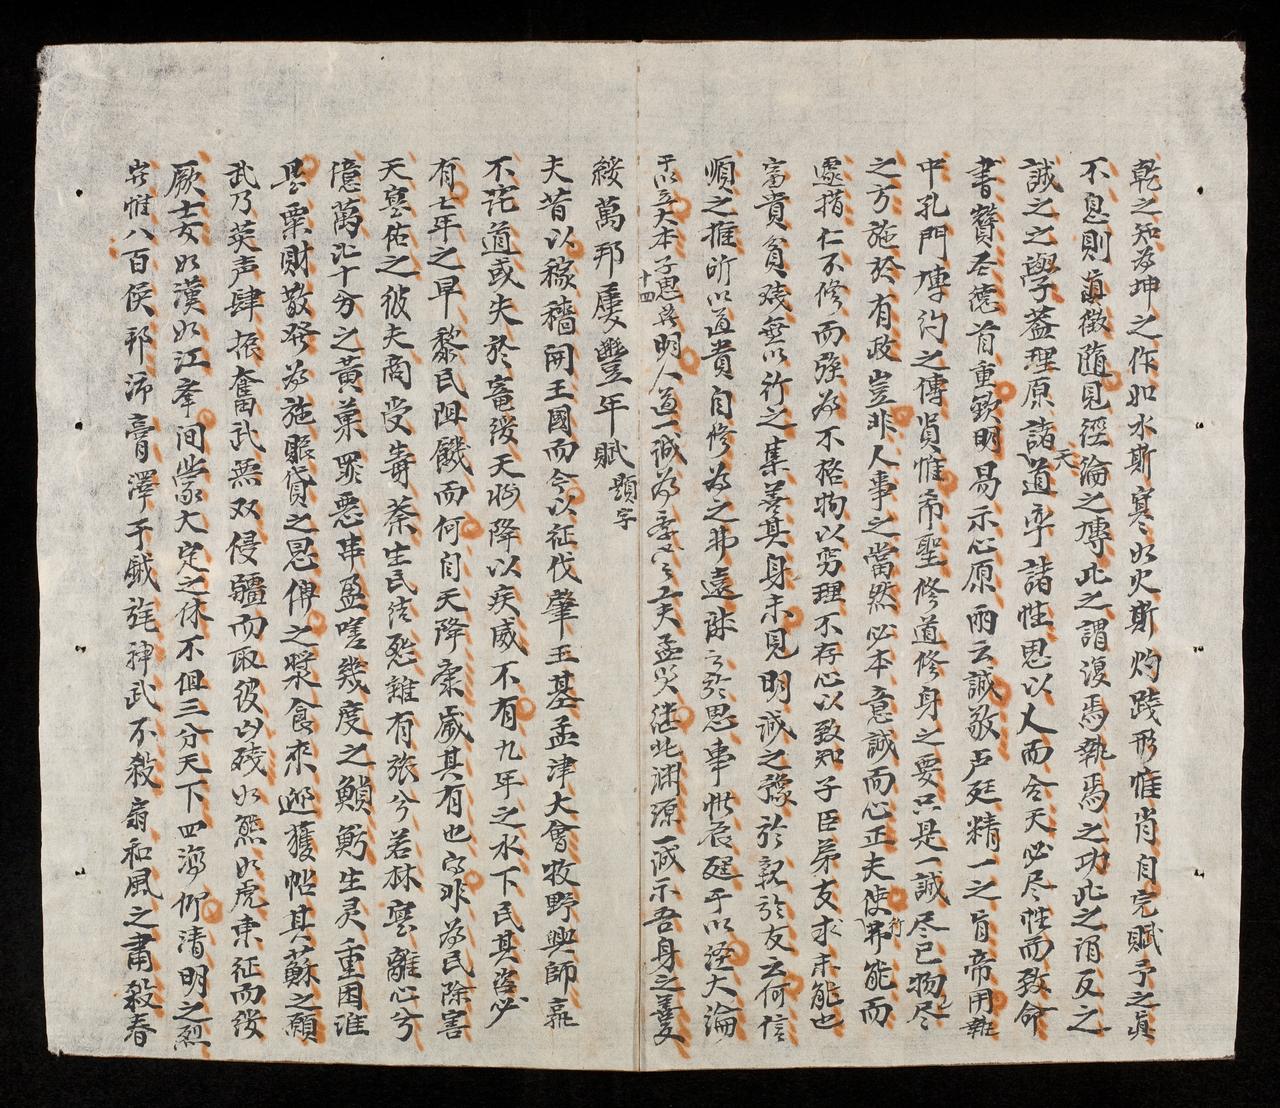 乾之知為坤之作如水斯寒如火斯灼踐形惟肖自完賦予之眞
不息則眞徵隨見徑淪之專此之謂復焉執焉之功此之謂反之
誠之之學盖理原諸天道率諸性思以人而合天必尽性而致命
書賛圣德首重欽明易示心原兩云誠敬卢廷精一之旨帝用執
中孔門博約之傳貲惟希聖修道修身之要只是一誠尽己物尽
之方施於有政豈非人事之當然必本意誠而心正夫使行界能而
遽指仁不修而強為不格物以窮理不存心以致知子臣弟友求未能也
富貴貧賤無以行之集善其身未見明誠之豫於親於友云何信
順之推所以道貴自修為之弗遠陟之於思事惟危廷于以經大淪
于以立大本子思其明人道一誠為
十四
孟氏継此渊源一誠示吾身之善反
綏萬邦屢豐年賦題字
夫昔以稼穡開王國而今以征伐肇王基孟津大會牧野興師
不詫道或失於竜後天將降以疾威不有九年之水下民其咨
有七年之旱黎民阻饑而何自天降康歲其有也為民除害
天寔佑之彼夫商受毒荼生民法愁雖有旅兮若林寔離心兮
億萬沘十分之黃菓眾惡事盈嗟幾度之鰥魴生灵重困淮
是粟財散發為施賑貸之恩傅之漿食來迎獲帖其蘇之願
武乃英声肆振奮武無双侵疆而取彼凶殘如熊如虎東征而綏
厥士女如漢如江峯間業大定之休不但三分天下四海仰清明之烈
豈惟八百侯邦沛膏澤于鉞旄神武不殺扇和風之肅殺春